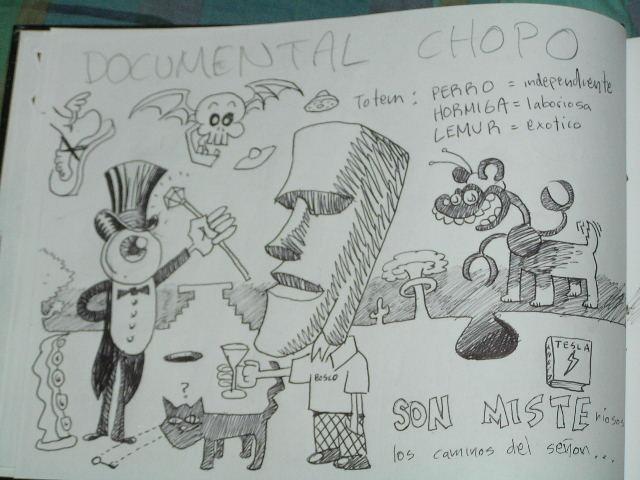 DOCUMENTAL CHOPO
Totem: PERRO = independiente
HORMIGA = laboriosa
LEMUR = exotico
TESLA
?
BOSCO
SON MISTEriosos
los caminos del señor...